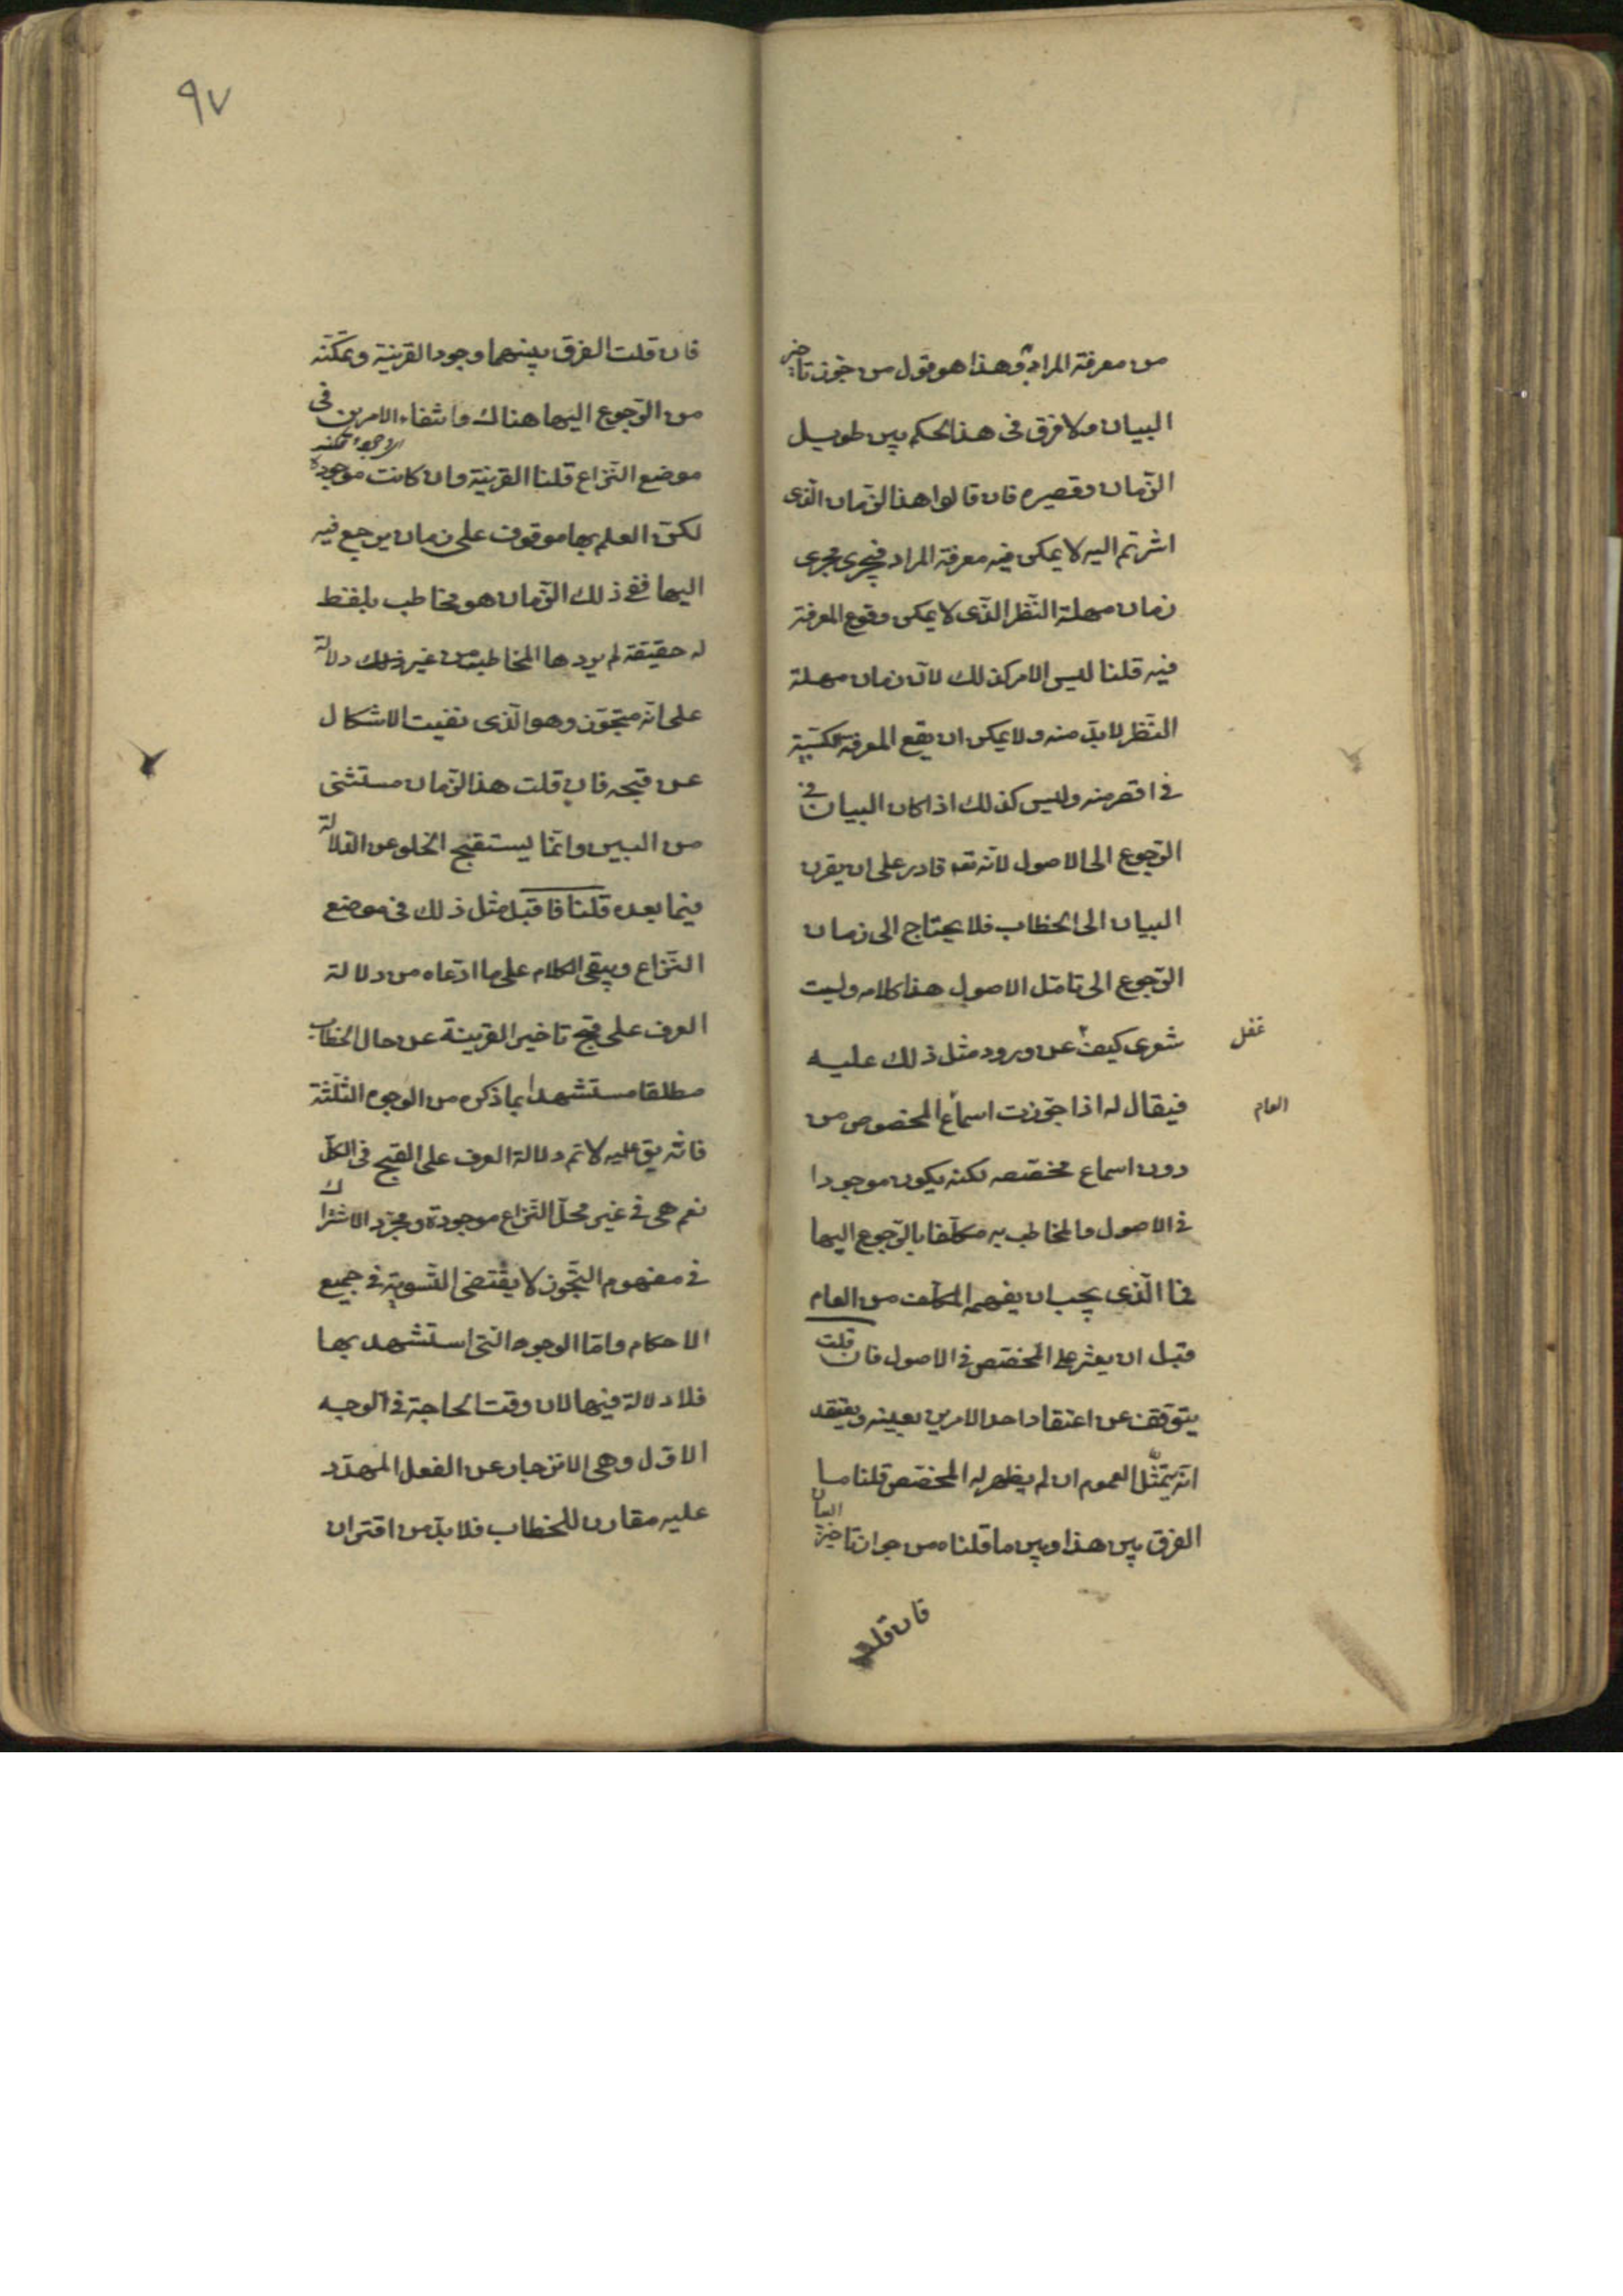 من معرفة المراد به وهذا هو قول من جوز تاخير
البيان ولا فرق في هذا الحكم بين طويل
الزّمان وقصيره فان قالوا هذا الزّمان الّذى
اشرتم اليه لا يمكن فيه معرفة المراد فيجرى مجرى
زمان مهلة النّظر الّذى لا يمكن وقوع المعرفة
فيه قلنا ليس الامر كذلك لانّ زمان مهلة
النّظر لابدّ منه ولا يمكن ان يقع المعرفة المكتسبة
في اقصر منه وليس كذلك اذا كان البيان في
الرّجوع الى الاصول لانّه تعه قادر على ان يقرن
البيان الى الخطاب فلا يحتاج الى زمان
الرّجوع الى تامّل الاصول هذا كلامه وليت
شعرى كيف غفل عن ورود مثل ذلك عليه
فيقال له اذا جوّزت اسماع العام المخصوص من
دون اسماع مخصّصه لكنه يكون موجودا
في الاصول والمخاطب به مكلّفا بالرّجوع اليها
فما الّذى يجب ان يفهمه المكلّف من العام
قبل ان يعثر على المخصّص في الاصول فان قلت
يتوقّف عن اعتقاد احد الامرين بعينه ويعتقد
انّه يمتثل العموم ان لم يظهر له المخصّص قلنا ما
الفرق بين هذا وبين ما قلناه من جواز تاخير البيان
فان قلت
٩٧
فان قلت الفرق بينهما وجود القرينة وتمكّنه
من الرّجوع اليها هناك وانتفاء الامرين في
موضع النّزاع قلنا القرينة وان كانت موجودة
لكنّ العلم بها موقوف على زمان يرجع فيه
اليها ففى ذلك الزّمان هو مخاطب بلفظ
له حقيقة لم يردها المخاطب من غير ذلك دلالة
على انّه متجوّز وهو الّذى نفيت الاشكال
عن قبحه فان قلت هذا الزّمان مستثنى
من البين وانّما يستقبح الخلو عن الدّلالة
فيما بعده قلنا فاقبل مثل ذلك في موضع
النّزاع ويبقى الكلام على ما ادّعاه من دلالة
العرف على قبح تاخير القرينة عن حال الخطاب
مطلقا مستشهدا بما ذكره من الوجوه الثّلثة
فانّه يق عليه لا تم دلالة العرف على القبح في الكلّ
نعم هى في غير محلّ النّزاع موجودة ومجرّد الاشتراك
في مفهوم التّجوز لا يقتضى التّسوية في جميع
الاحكام وامّا الوجوه الّتى استشهد بها
فلا دلالة فيها لان وقت الحاجة في الوجه
الاوّل وهى الانزجار عن الفعل المهدّد
عليه مقارن للخطاب فلا بدّ من اقتران